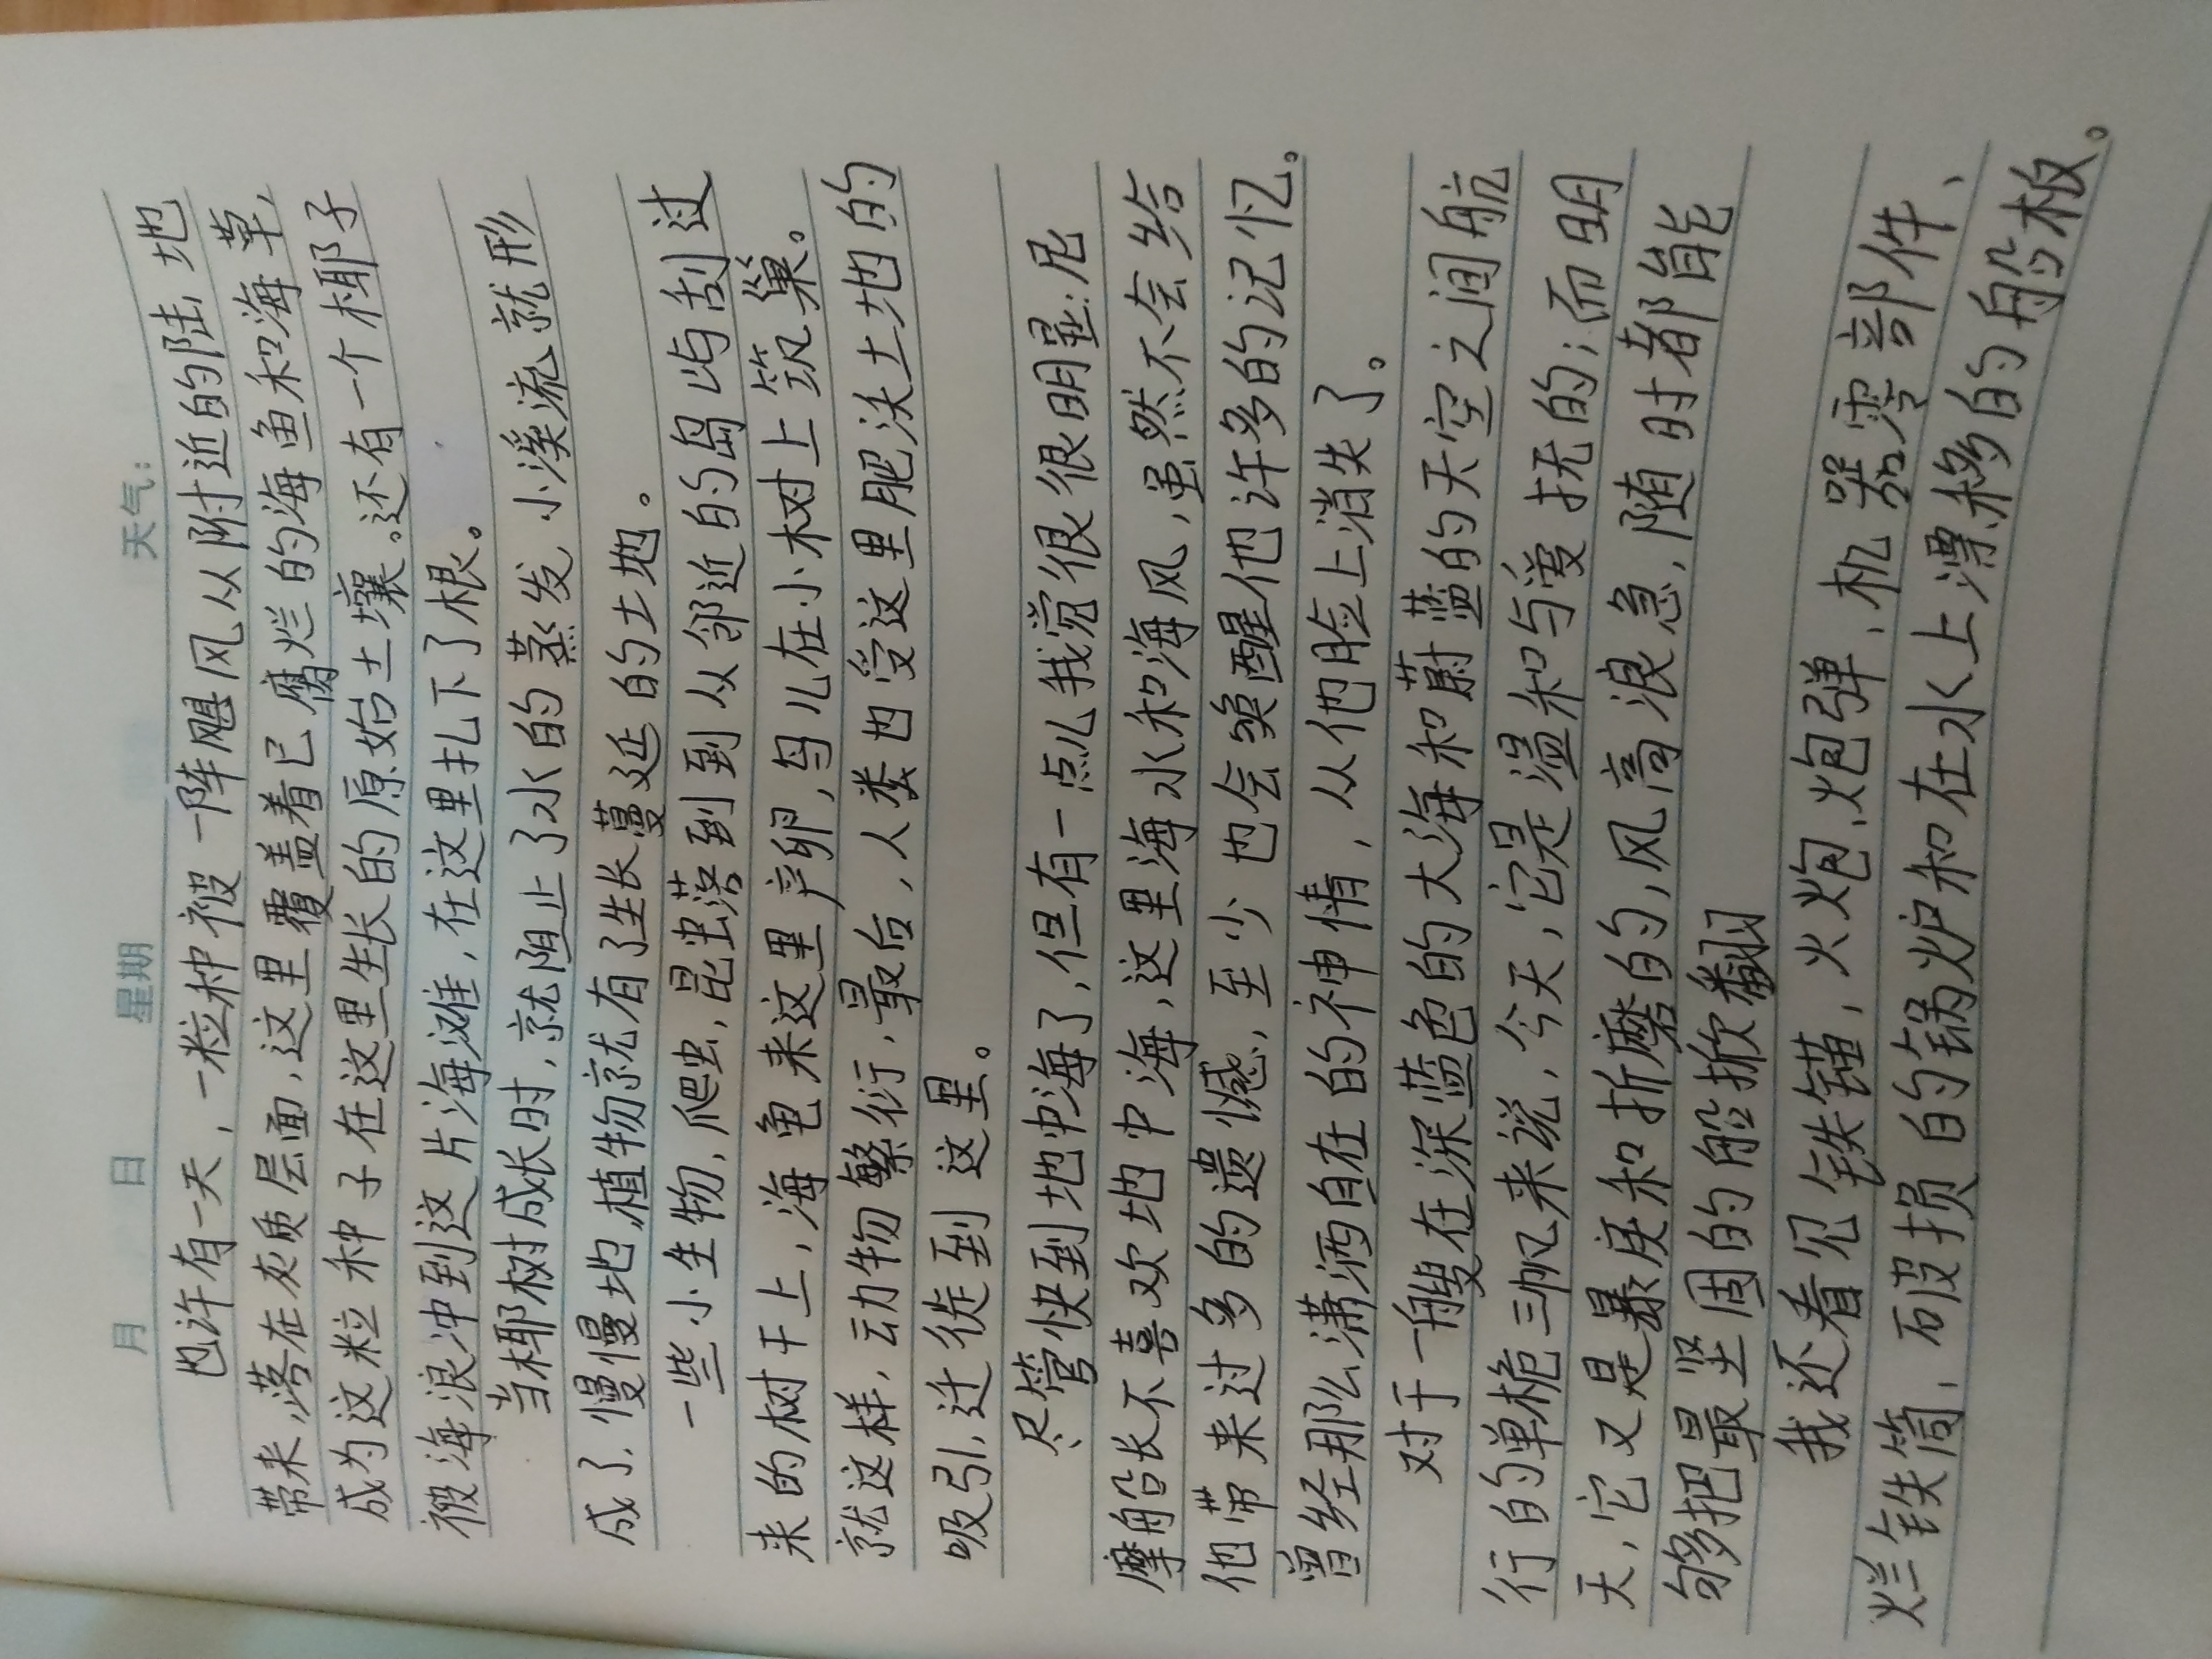 月 日 星期 天气:
也许有一天,一粒种被一阵飓风从附近的陆地
带来,落在灰质层面,这里覆盖着已腐烂的海鱼和海草,
成为这粒种子在这里生长的原始土壤。还有一个椰子
被海浪冲到这片海滩,在这里扎下了根。
当椰树成长时,就阻止了水的蒸发,小溪流就形
成了,慢慢地,植物就有了生长蔓延的土地。
一些小生物,爬虫,昆虫落到到从邻近的岛屿刮过
来的树干上,海龟来这里产卵,鸟儿在小树上筑巢。
就这样,动物繁衍,最后,人类也受这里肥沃土地的
吸引,迁徙到这里。
尽管快到地中海了,但有一点儿我觉很很明显:尼
摩船长不喜欢地中海,这里海水和海风,虽然不会给
他带来过多的遗憾,至少也会唤醒他许多的记忆。
曾经那么潇洒自在的神情,从他脸上消失了。
对于一艘在深蓝色的大海和蔚蓝的天空之间航
行的单桅三帆来说,今天,它是温和与爱抚的;而明
天,它又是暴戾和折磨的,风高浪急,随时都能
够把最坚固的船掀翻
我还看见铁锚,火炮、炮弹、机器零部件、
烂铁筒、破损的锅炉和在水上漂移的船板。